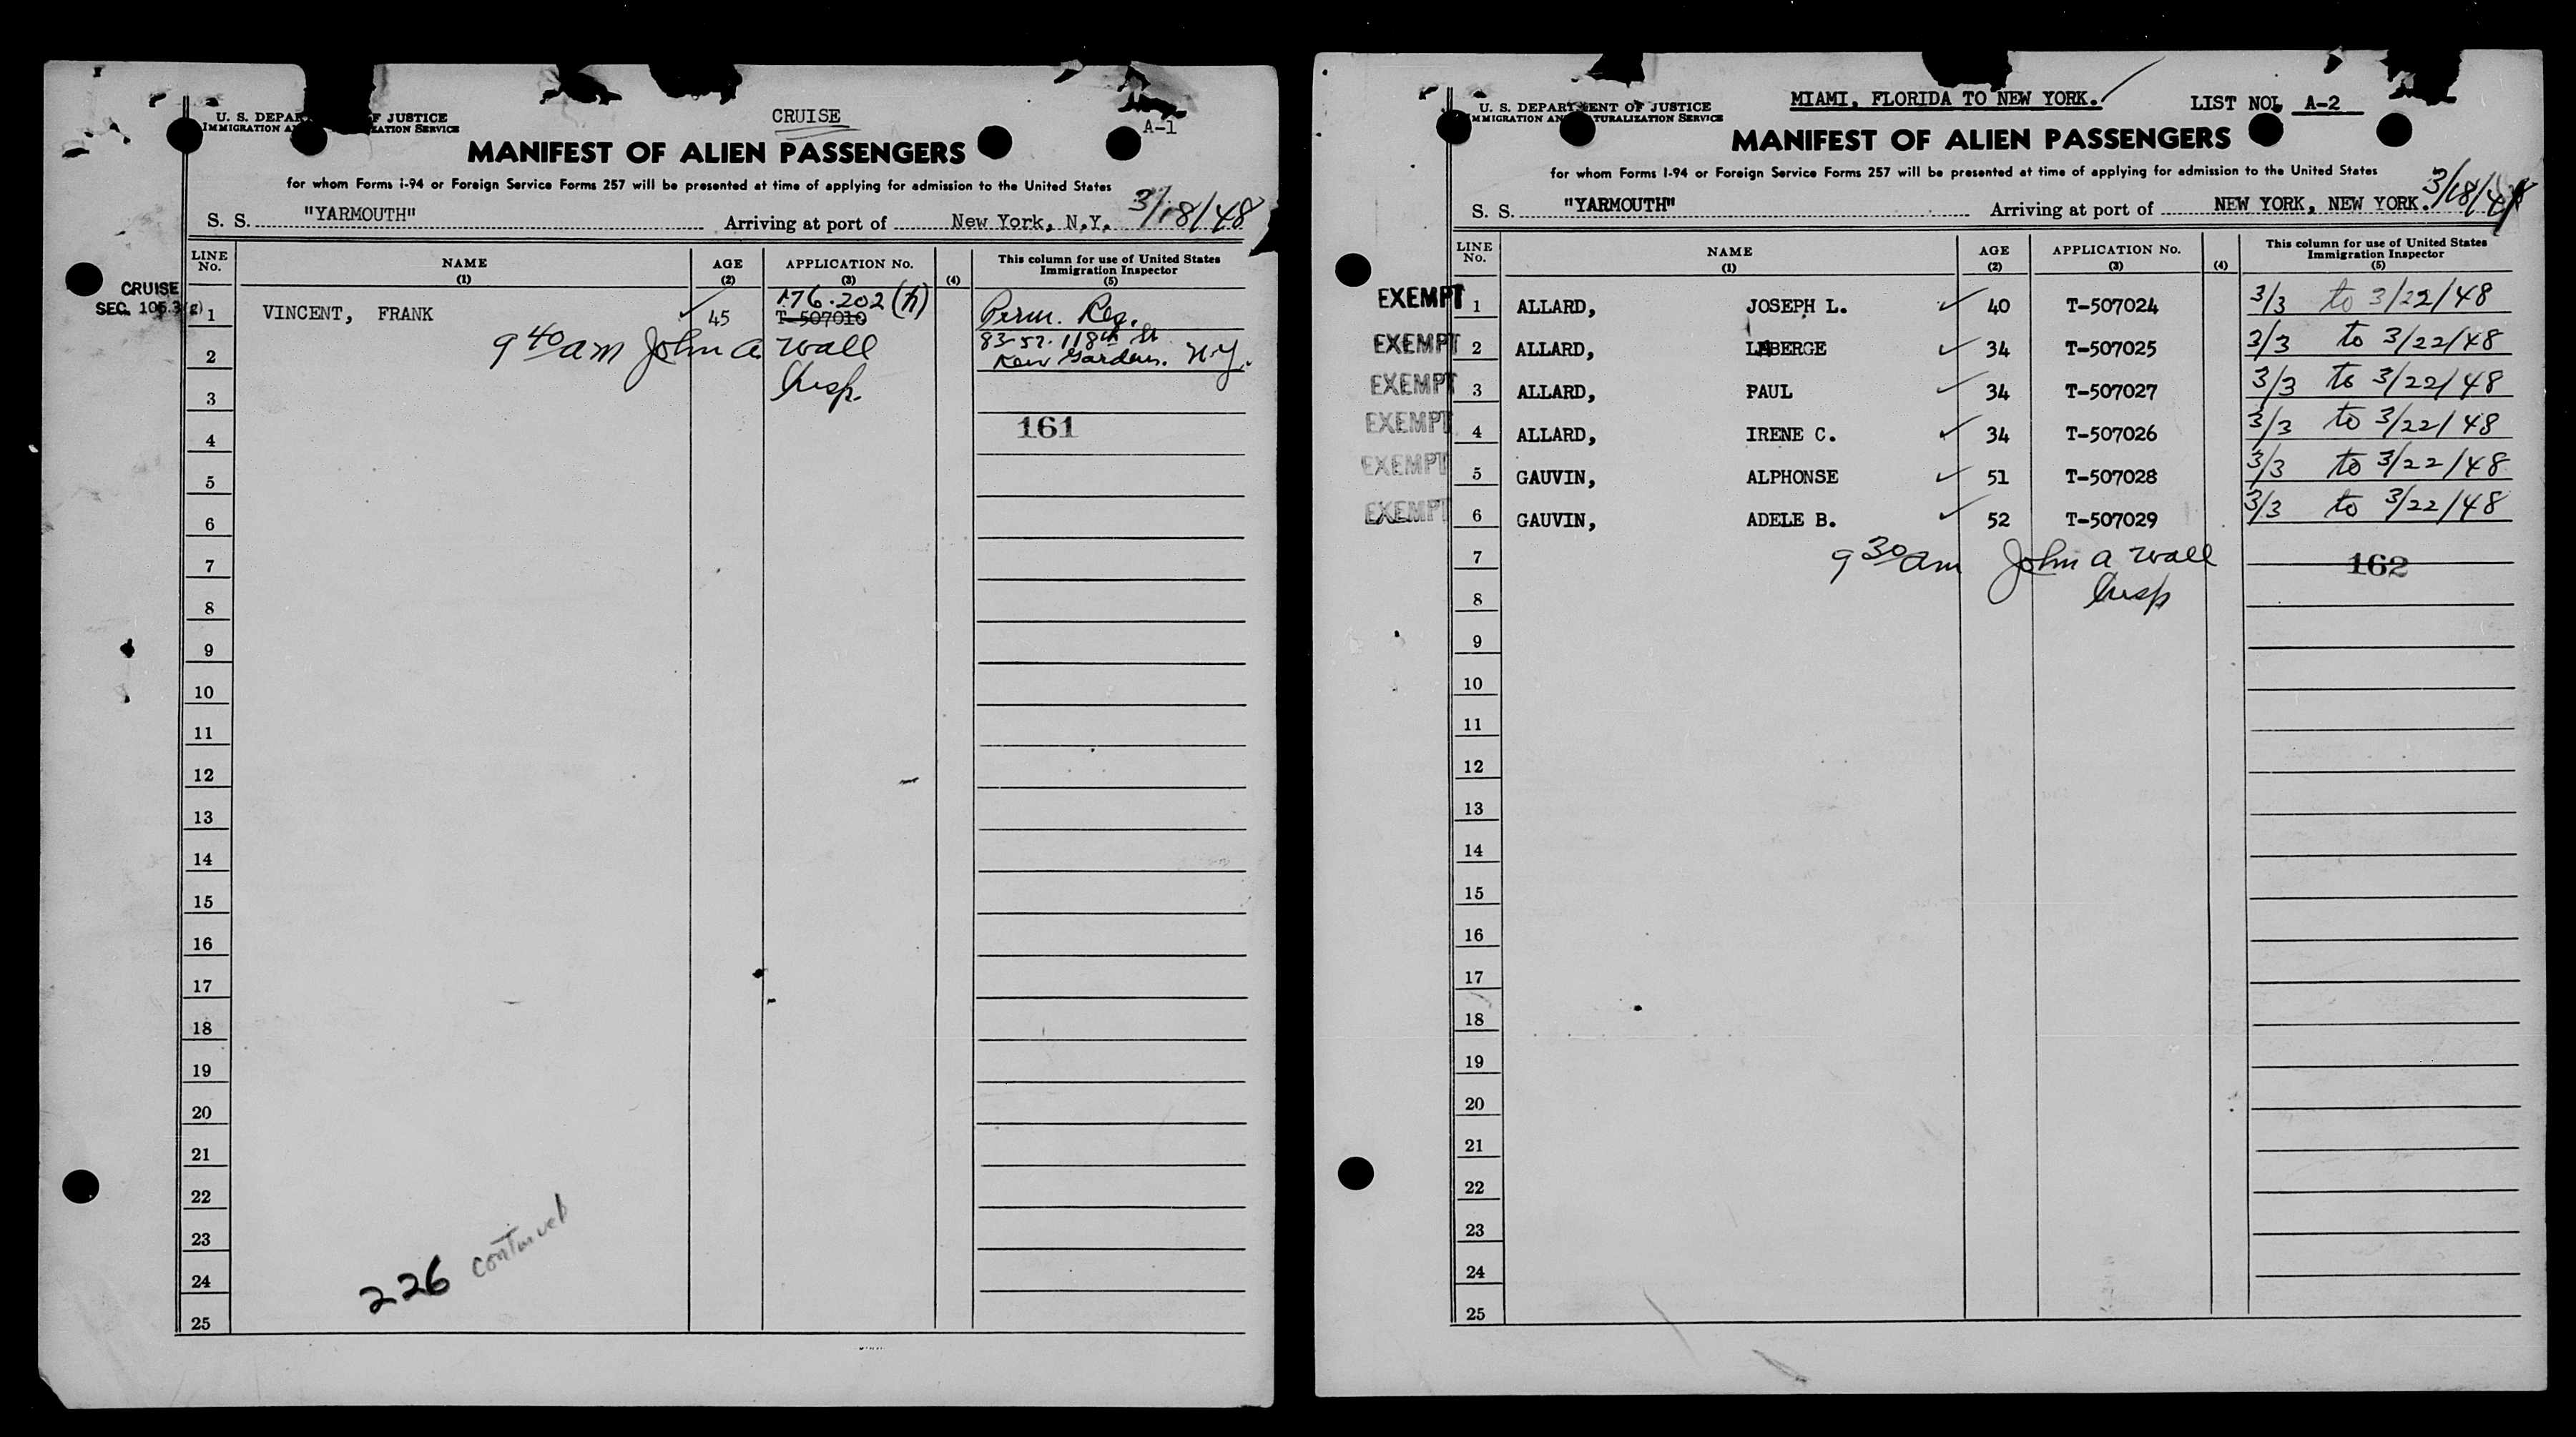 CRUISE
A-1
U. S. DEPAR F JUSTICE
IMMIGRATION A ZATION SERVICE
MANIFEST OF ALIEN PASSENGERS
for whom Forms I-94 or Foreign Service Forms 257 will be presented at time of applying for admission to the United States
3/18/48
S. S. "YARMOUTH" Arriving at port of New York, N.Y.
LINE No. NAME (1) AGE (2) APPLICATION No. (3) (4) This column for use of United States Immigration Inspector (5)
CRUISE
SEC. 105.3(g)
176.202(h)
1 VINCENT, FRANK ✓ 45 T-507010 Perm. Reg.
83-57-118th St
2 9 40 am John A Wall Kew Gardens. N.Y.
Insp.
3
161
4
5
6
7
8
9
10
11
12
13
14
15
16
17
18
19
20
21
22
23
24
25
226 continued
MIAMI, FLORIDA TO NEW YORK.
LIST NO. A-2
U. S. DEPARTMENT OF JUSTICE
IMMIGRATION AN TURALIZATION SERVICE
MANIFEST OF ALIEN PASSENGERS
for whom Forms I-94 or Foreign Service Forms 257 will be presented at time of applying for admission to the United States
3/18/48
S. S. "YARMOUTH" Arriving at port of NEW YORK, NEW YORK.
LINE No. NAME (1) AGE (2) APPLICATION No. (3) (4) This column for use of United States Immigration Inspector (5)
EXEMPT 1 ALLARD, JOSEPH L. ✓ 40 T-507024 3/3 to 3/22/48
EXEMPT 2 ALLARD, LABERGE ✓ 34 T-507025 3/3 to 3/22/48
EXEMPT 3 ALLARD, PAUL ✓ 34 T-507027 3/3 to 3/22/48
EXEMPT 4 ALLARD, IRENE C. ✓ 34 T-507026 3/3 to 3/22/48
EXEMPT 5 GAUVIN, ALPHONSE ✓ 51 T-507028 3/3 to 3/22/48
EXEMPT 6 GAUVIN, ADELE B. ✓ 52 T-507029 3/3 to 3/22/48
7 9 30 am John A Wall 162
8 Insp
9
10
11
12
13
14
15
16
17
18
19
20
21
22
23
24
25